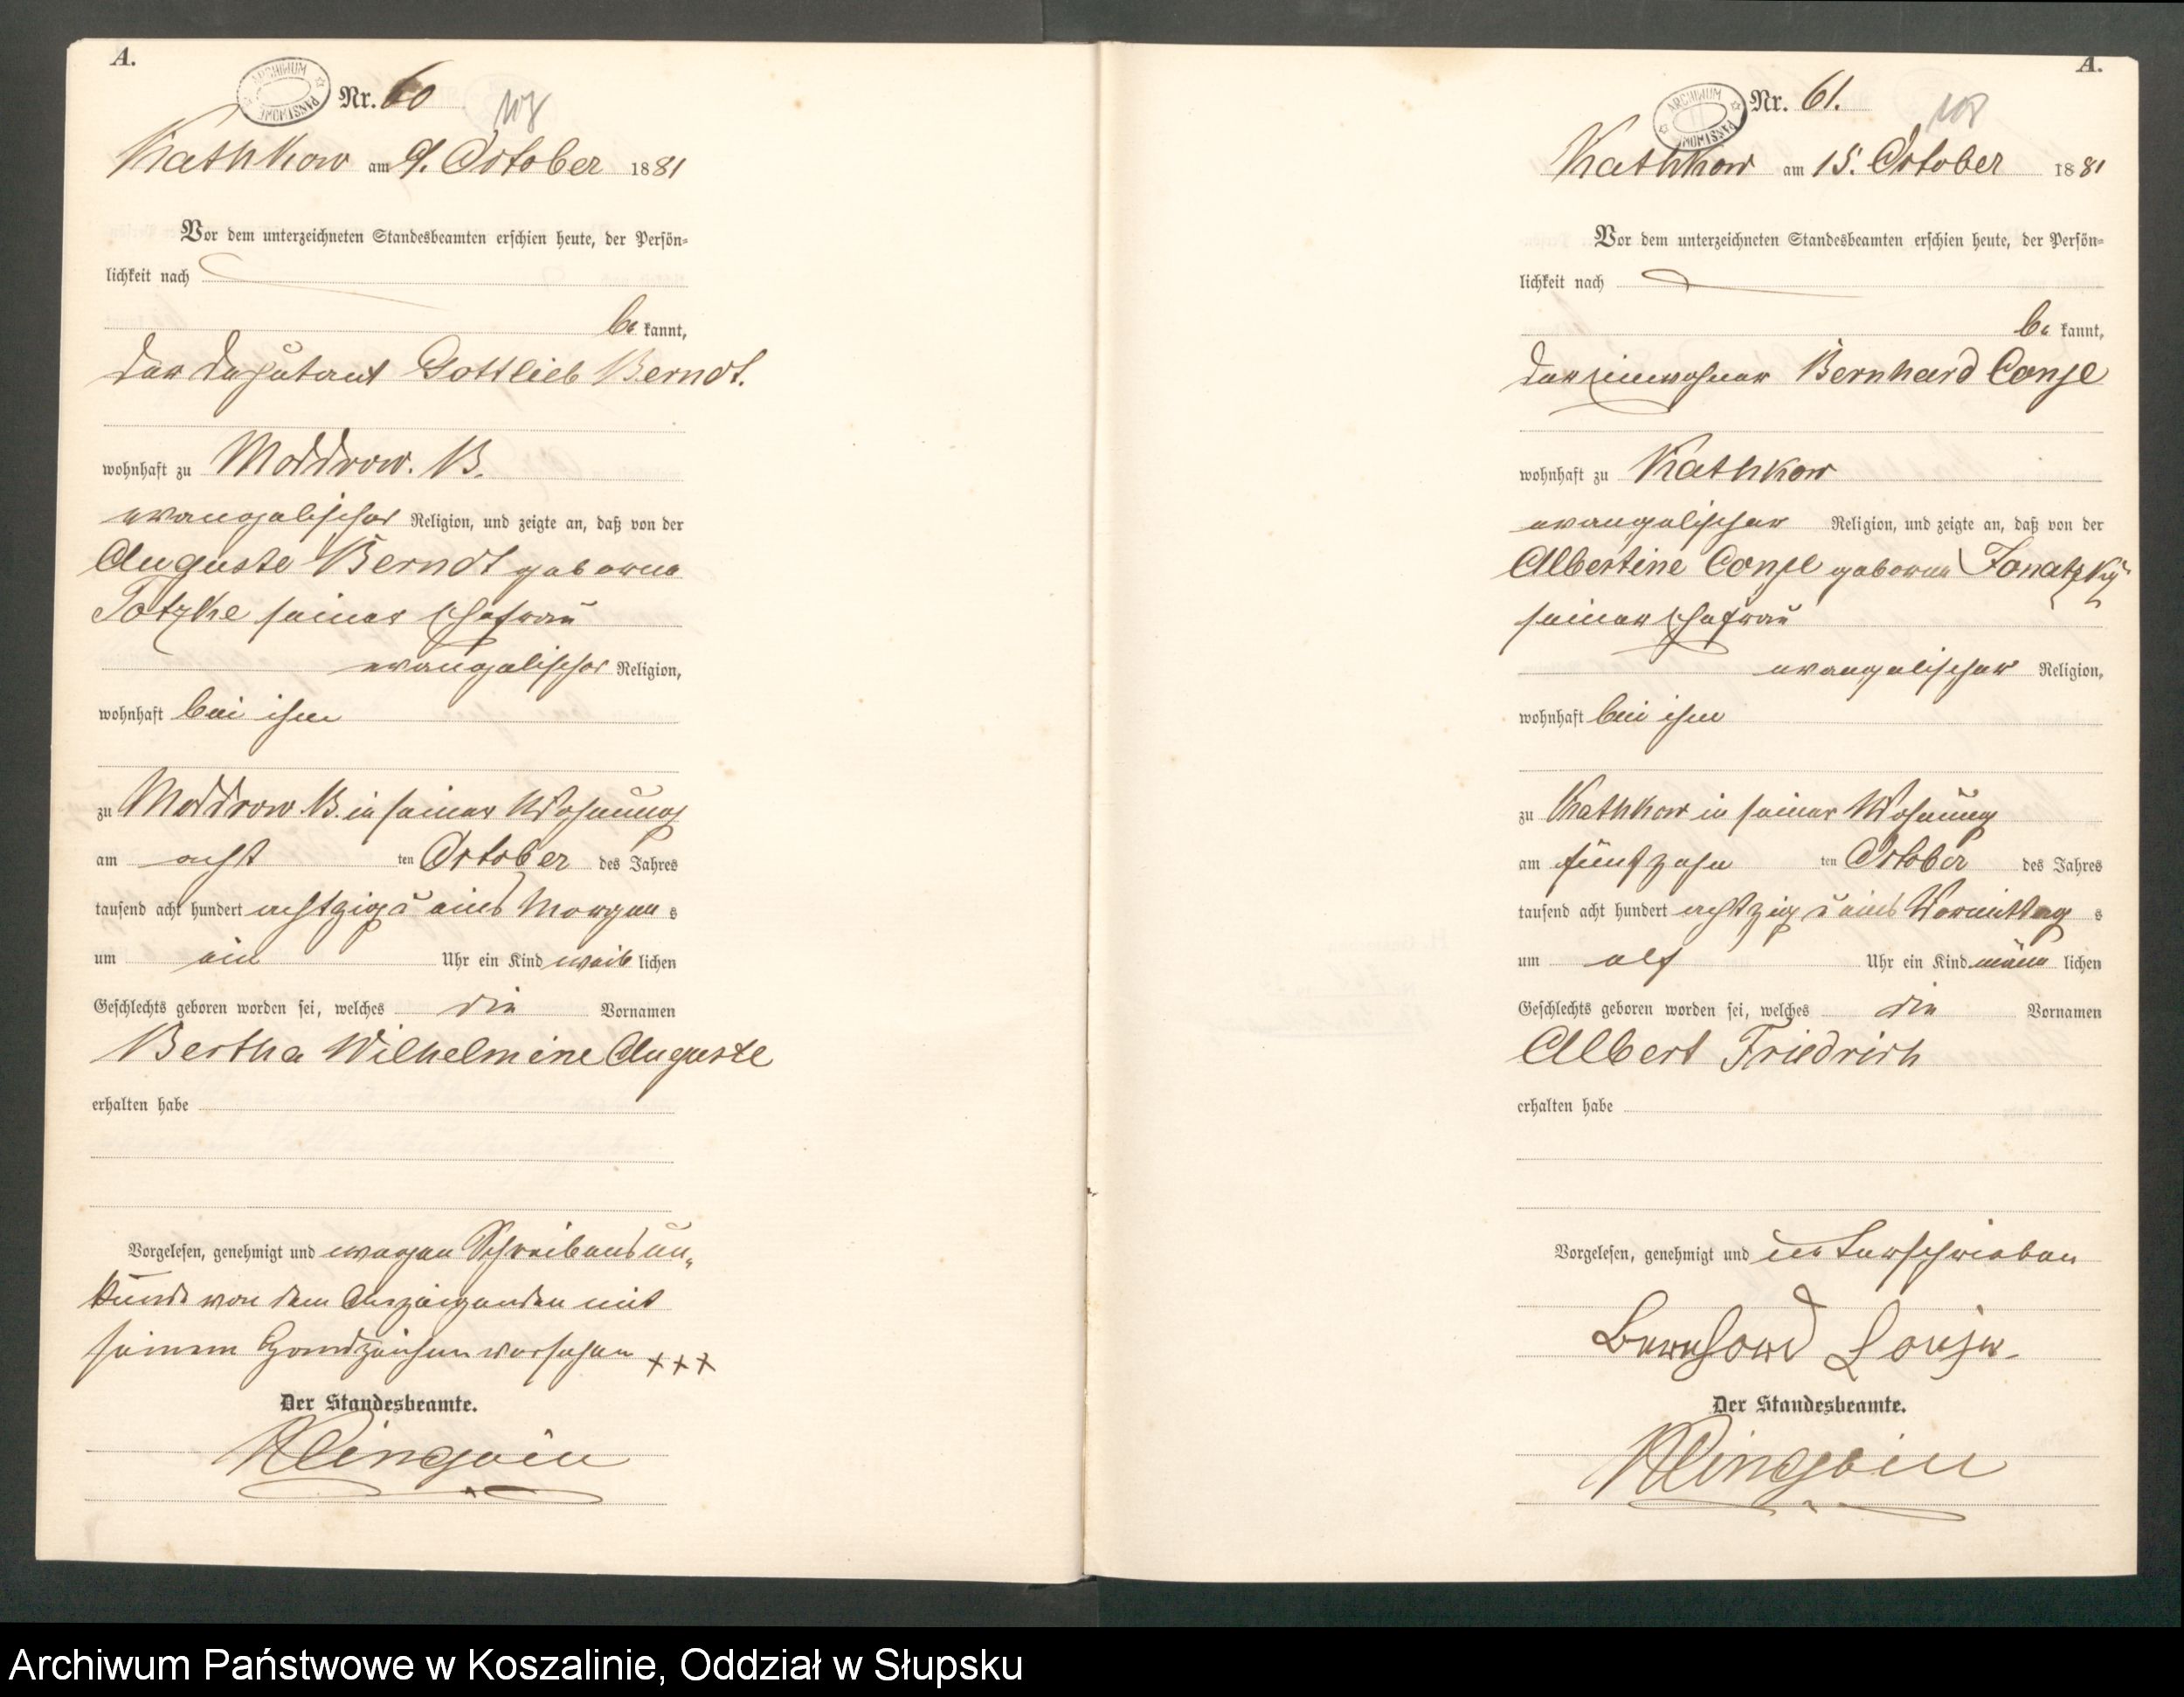 A.
ARCHIWUM PAŃSTWOWE
Nr. 60
108
Kathkow am 9. October 1881
Vor dem unterzeichneten Standesbeamten erschien heute, der Persön-
lichkeit nach
be kannt,
der Deputant Gottlieb Berndt.
wohnhaft zu Moddrow. B.
evangelischer Religion, und zeigte an, daß von der
Auguste Berndt geborne
Totzke seiner Ehefrau
evangelischer Religion,
wohnhaft bei ihm
zu Moddrow B. in seiner Wohnung
am acht ten October des Jahres
tausend acht hundert achtzig u eins Morgen s
um ein Uhr ein Kind weib lichen
Geschlechts geboren worden sei, welches die Vornamen
Bertha Wilhelmine Auguste
erhalten habe
Vorgelesen, genehmigt und wegen Schreibensun-
kunde von dem Anzeigenden mit
seinem Handzeichen versehen +++
Der Standesbeamte.
A.
ARCHIWUM PAŃSTWOWE
Nr. 61.
108
Kathkow am 15. October 1881
Vor dem unterzeichneten Standesbeamten erschien heute, der Persön-
lichkeit nach
be kannt,
der Einwohner Bernhard Conje
wohnhaft zu Kathkow
evangelischer Religion, und zeigte an, daß von der
Albertine Conje geborne
seiner Ehefrau
evangelischer Religion,
wohnhaft bei ihm
zu Kathkow in seiner Wohnung
am fünfzehn ten October des Jahres
tausend acht hundert achtzig u eins Vormittag s
um elf Uhr ein Kind männ lichen
Geschlechts geboren worden sei, welches die Vornamen
Albert Friedrich
erhalten habe
Vorgelesen, genehmigt und unterschrieben
Bernhard Conje
Der Standesbeamte.
Archiwum Państwowe w Koszalinie, Oddział w Słupsku